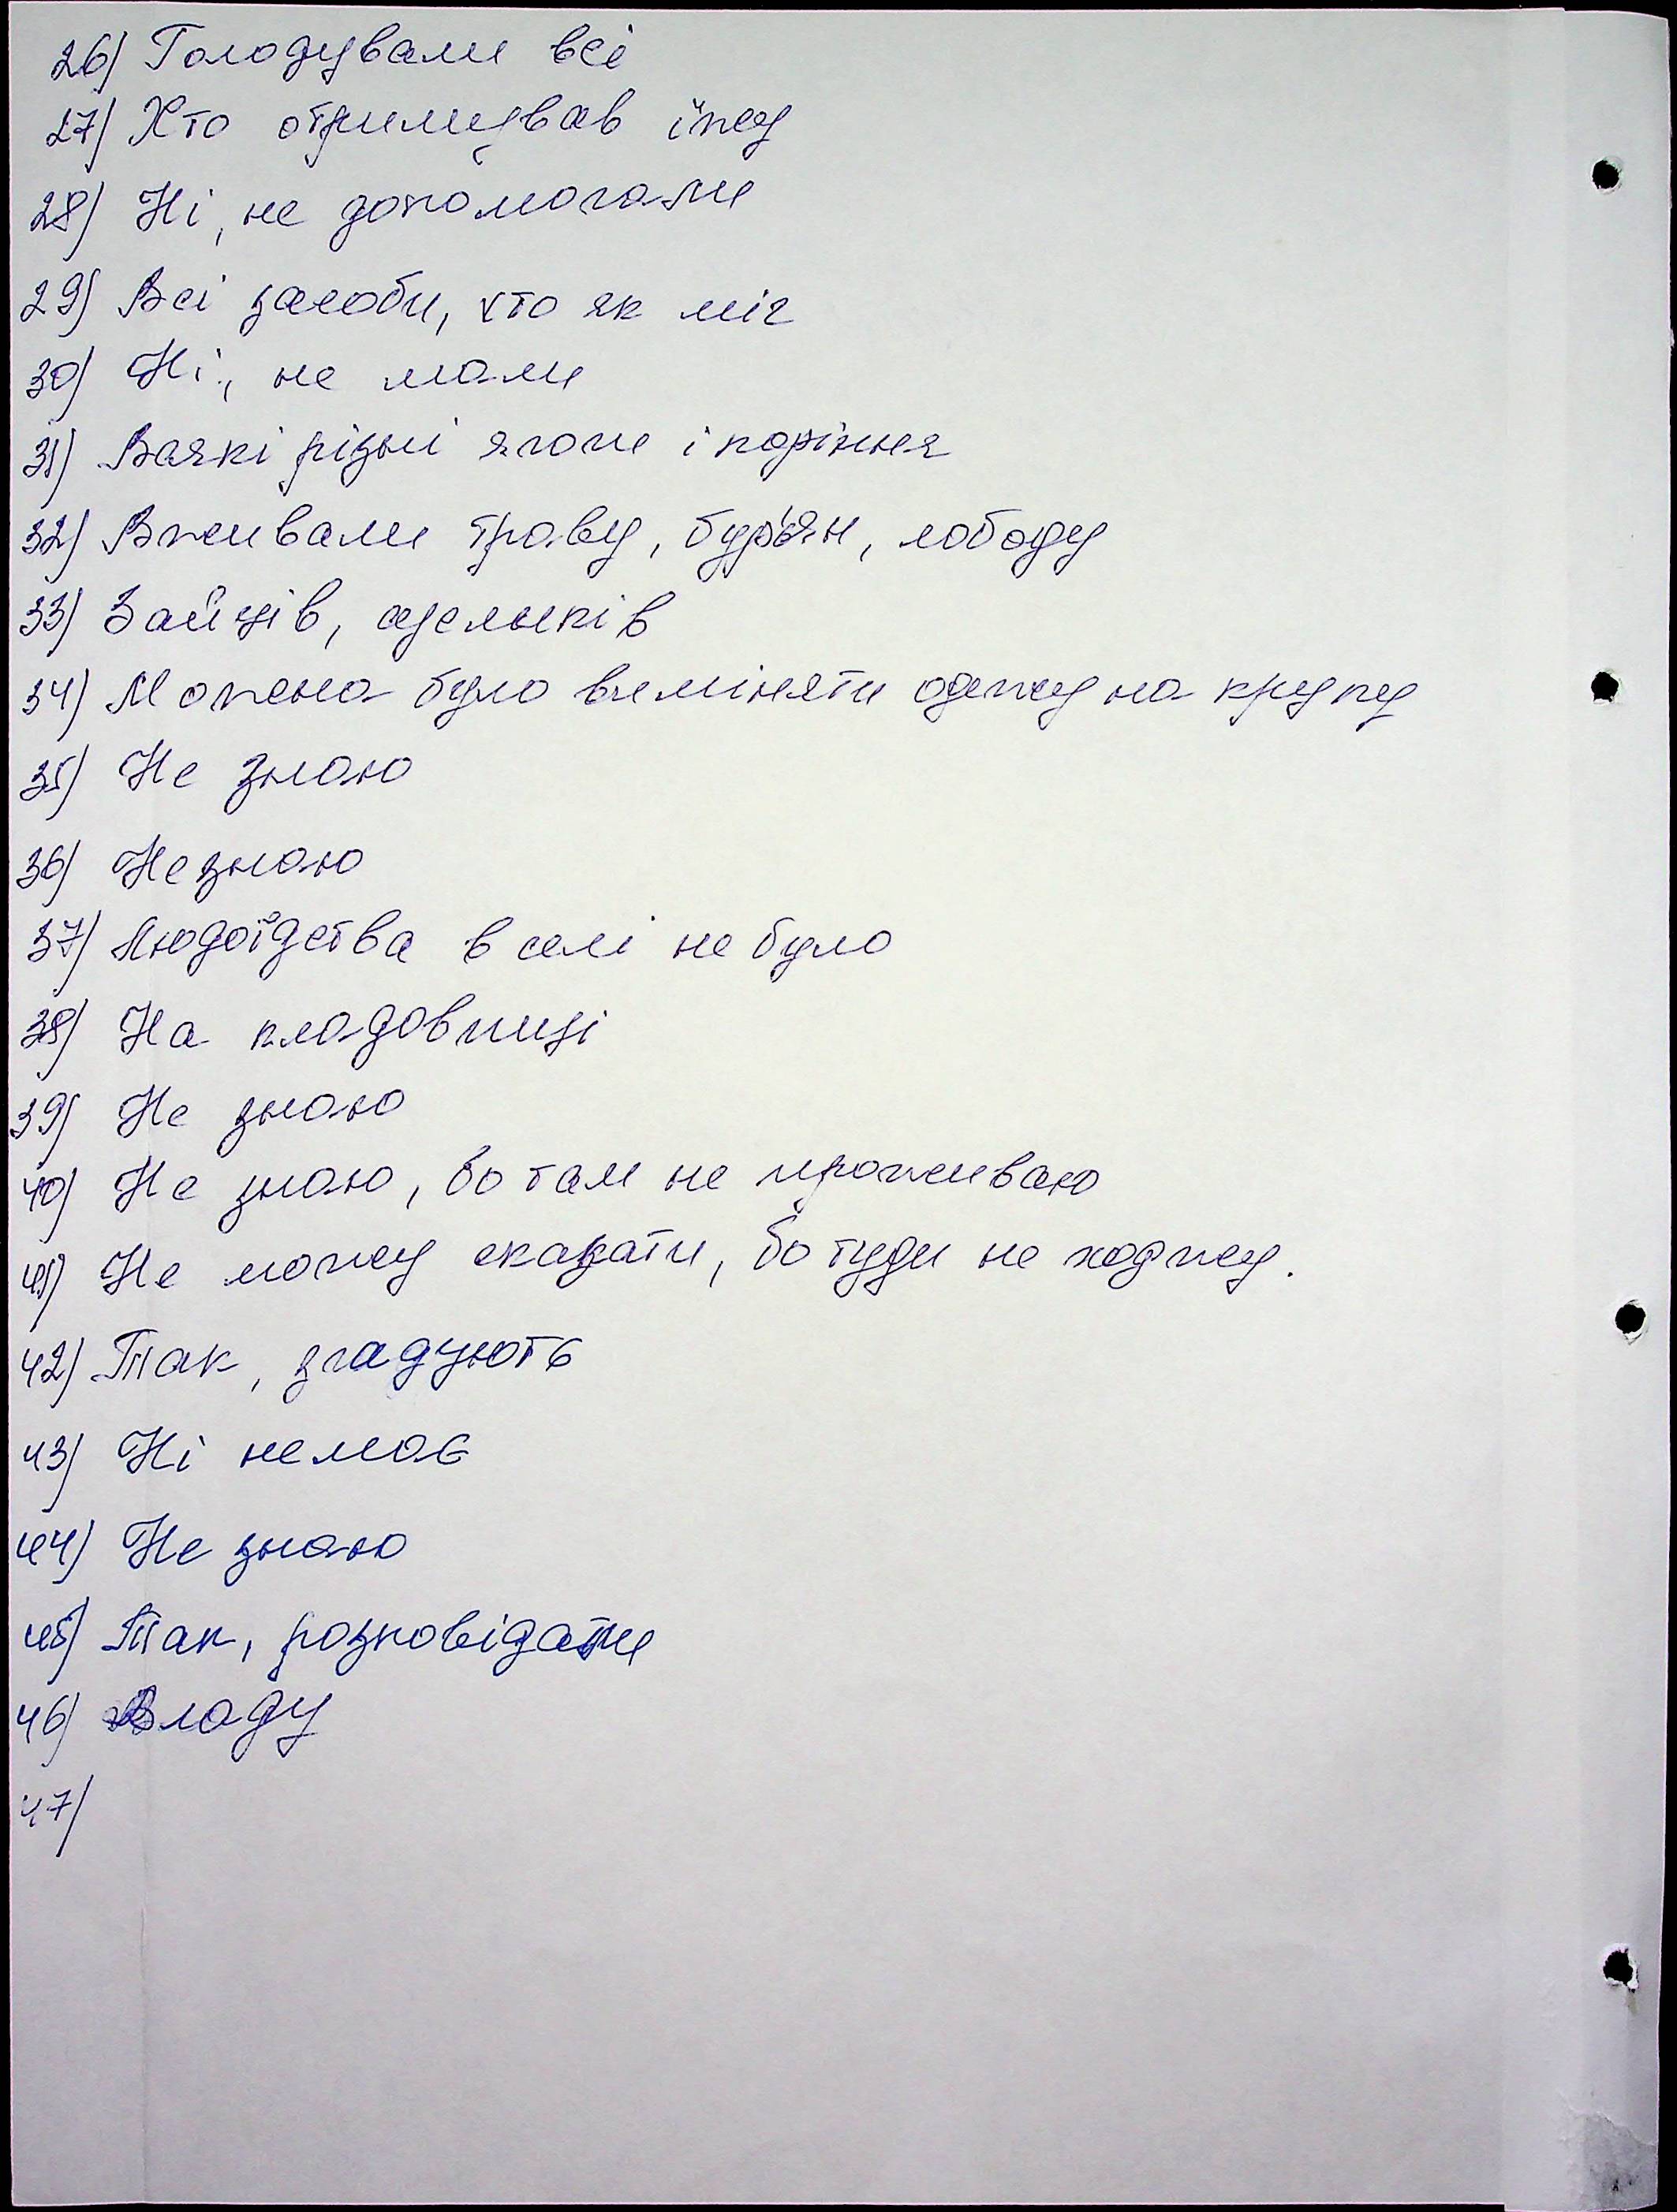 26) Голодували всі
27) Хто отримував їжу
28) Ні, не допомогали
29) Всі засоби, хто як міг
30) Ні, не мали
31) Всякі різні ягоди і коріння
32) Вживали траву, бур'ян, лободу
33) Зайців,
34) Можна було виміняти одежу на крупу
35) Не знаю
36) Не знаю
37) Людоїдства в селі не було
38) На кладовищі
39) Не знаю
40) Не знаю, бо там не проживаю
41) Не можу сказати, бо туди не ходжу.
42) Так, згадують
43) Ні немає
44) Не знаю
45) Так, розповідати
46) Владу
47)